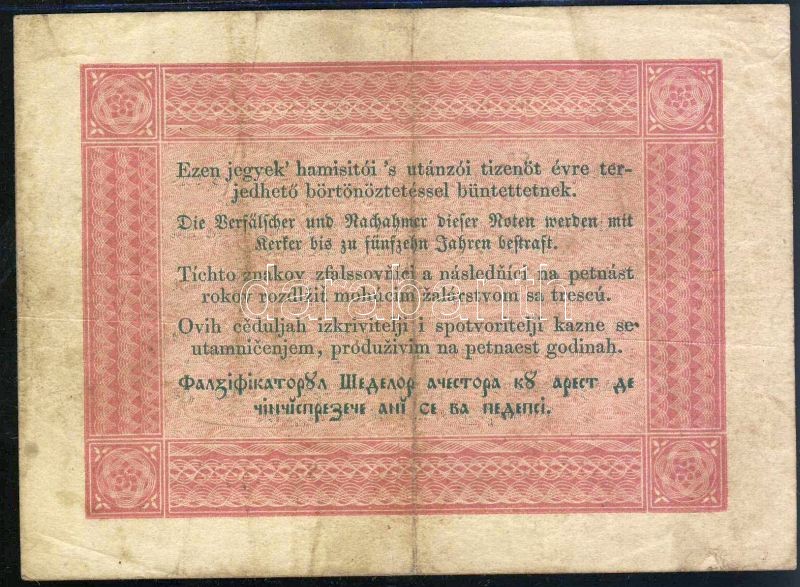 Ezen jegyek' hamisitói 's utánzói tizenöt évre ter-
jedhető börtönöztetéssel büntettetnek.
Die Verfälscher und Nachahmer dieser Noten werden mit
Kerker bis zu fünfzehn Jahren bestraft.
Tíchto znákov zfalssovňíci a následňíci na petnást
rokov rozdlžiť mohúcim žalárstvom sa trescú.
Ovih céduljah izkrivitelji i spotvoritelji kazne se
utamničenjem, produživim na petnaest godinah.
Фалзіфікаторꙋл Шеделор ачестора кꙋ арест де
чінчіспрезече ані се ва педепсі.
darabanth